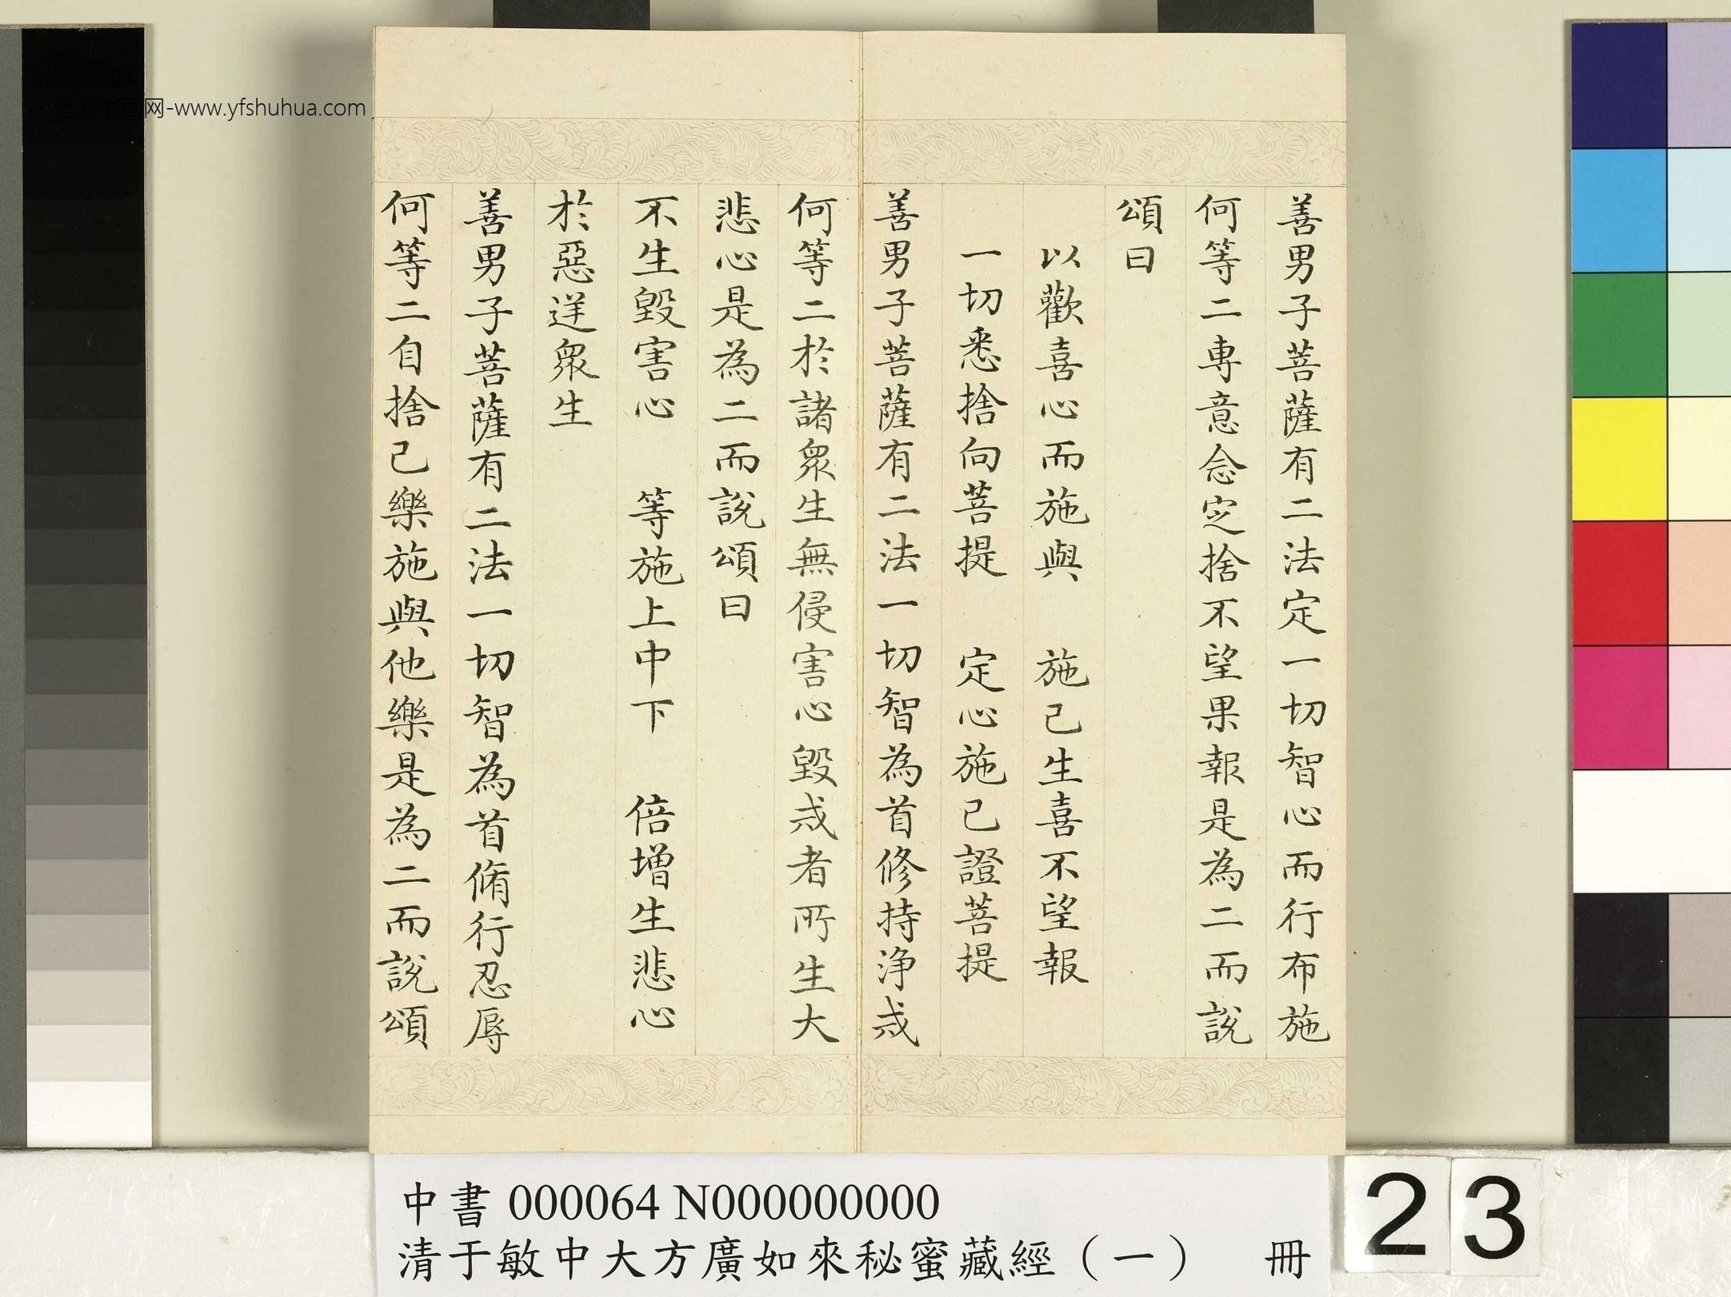 善男子菩薩有二法定一切智心而行布施
何等二專意念定捨不望果報是為二而說
頌曰
以歡喜心而施與　施已生喜不望報
一切悉捨向菩提　定心施已證菩提
善男子菩薩有二法一切智為首修持淨戒
何等二於諸衆生無侵害心毀戒者所生大
悲心是為二而說頌曰
不生毀害心　等施上中下　倍增生悲心
於惡逆衆生
善男子菩薩有二法一切智為首脩行忍辱
何等二自捨己樂施與他樂是為二而說頌
中書 000064 N000000000
清于敏中大方廣如來秘蜜藏經（一）　冊
23
书画网-www.yfshuhua.com